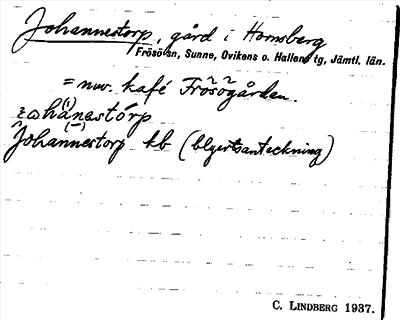 Johannestorp, gård i Hornsberg
Frösö sn, Sunne, Ovikens o. Hallens tg, Jämtl. län.
= nuv. kafé Frösögården.
Johannestorp kb (blyertsanteckning)
C. LINDBERG 1937.